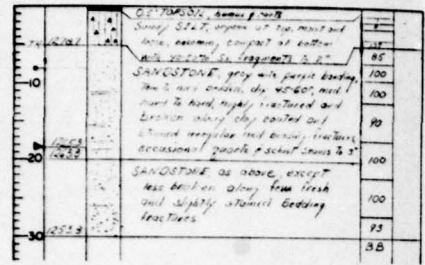 0-2" TOPSOIL, humus & roots
Sandy SILT, organic at top, moist and
loose, becoming compact at bottom
with Ss. fragments to 2"
SANDSTONE, grey with purple banding,
thin to med bedded, dip 45-60°, med
hard to hard, highly fractured and
broken along clay coated and
stained irregular and bedding fractures,
occasional quartz & schist seams to 3"
SANDSTONE, as above, except
less broken along few fresh
and slightly stained Bedding
fractures
10
20
30
1253.3
85
100
100
90
100
100
93